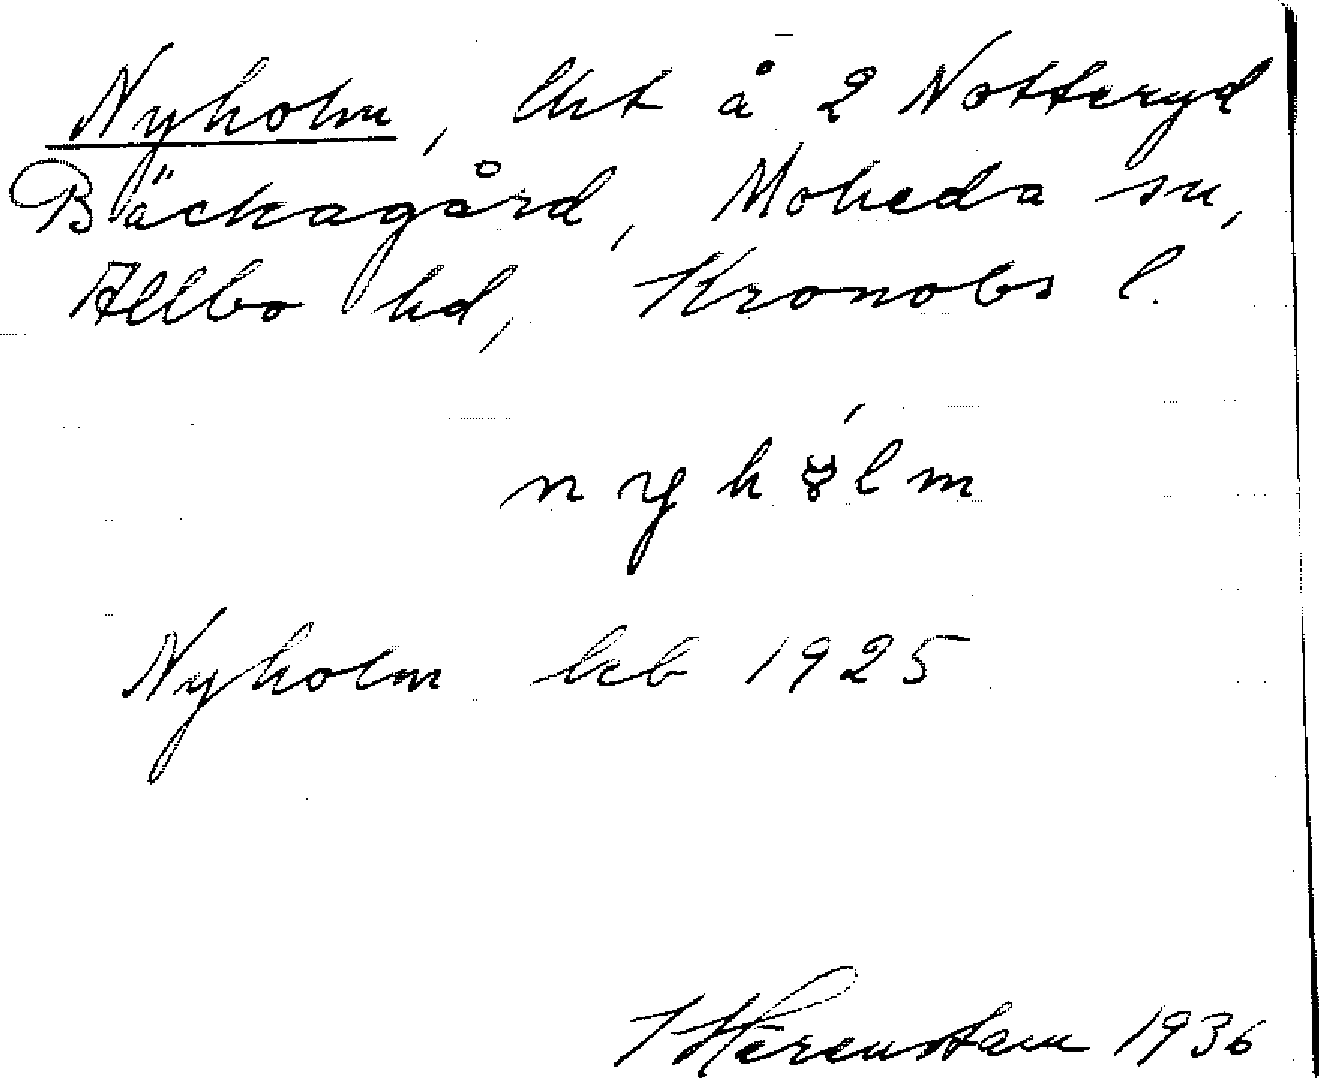 Nyholm, lht å 2 Notteryd
Bäckagård, Moheda sn,
Allbo hd, Kronobs l.
nyhólm
Nyholm lcb 1925
1936